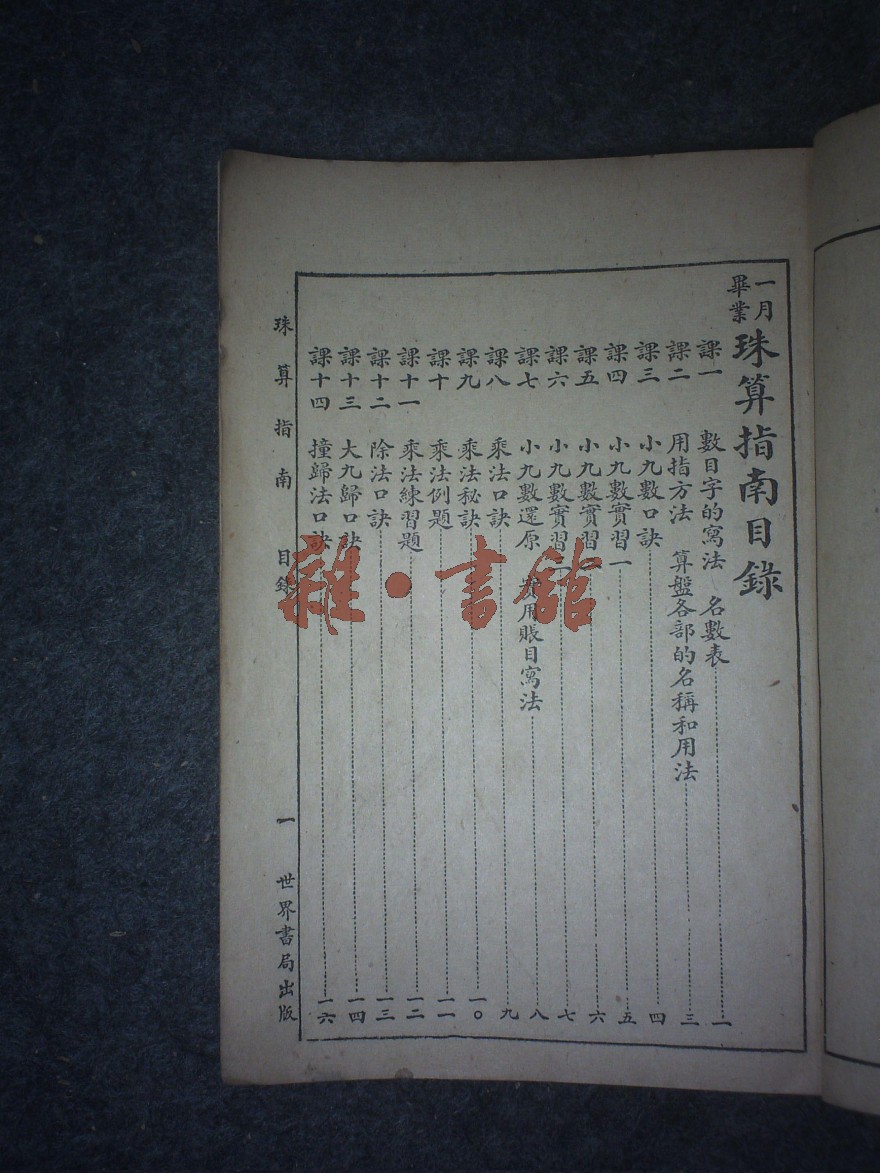 一月畢業珠算指南目錄
課一 數目字的寫法 名數表 一
課二 用指方法 算盤各部的名稱和用法 三
課三 小九數口訣 四
課四 小九數實習一 五
課五 小九數實習二 六
課六 小九數實習三 七
課七 小九數還原 用賬目寫法 八
課八 乘法口訣 九
課九 乘法秘訣 一〇
課十 乘法例題 一一
課十一 乘法練習題 一二
課十二 除法口訣 一三
課十三 大九歸口訣 一四
課十四 撞歸法口訣 一六
珠算指南 目錄 一 世界書局出版
雜·書館